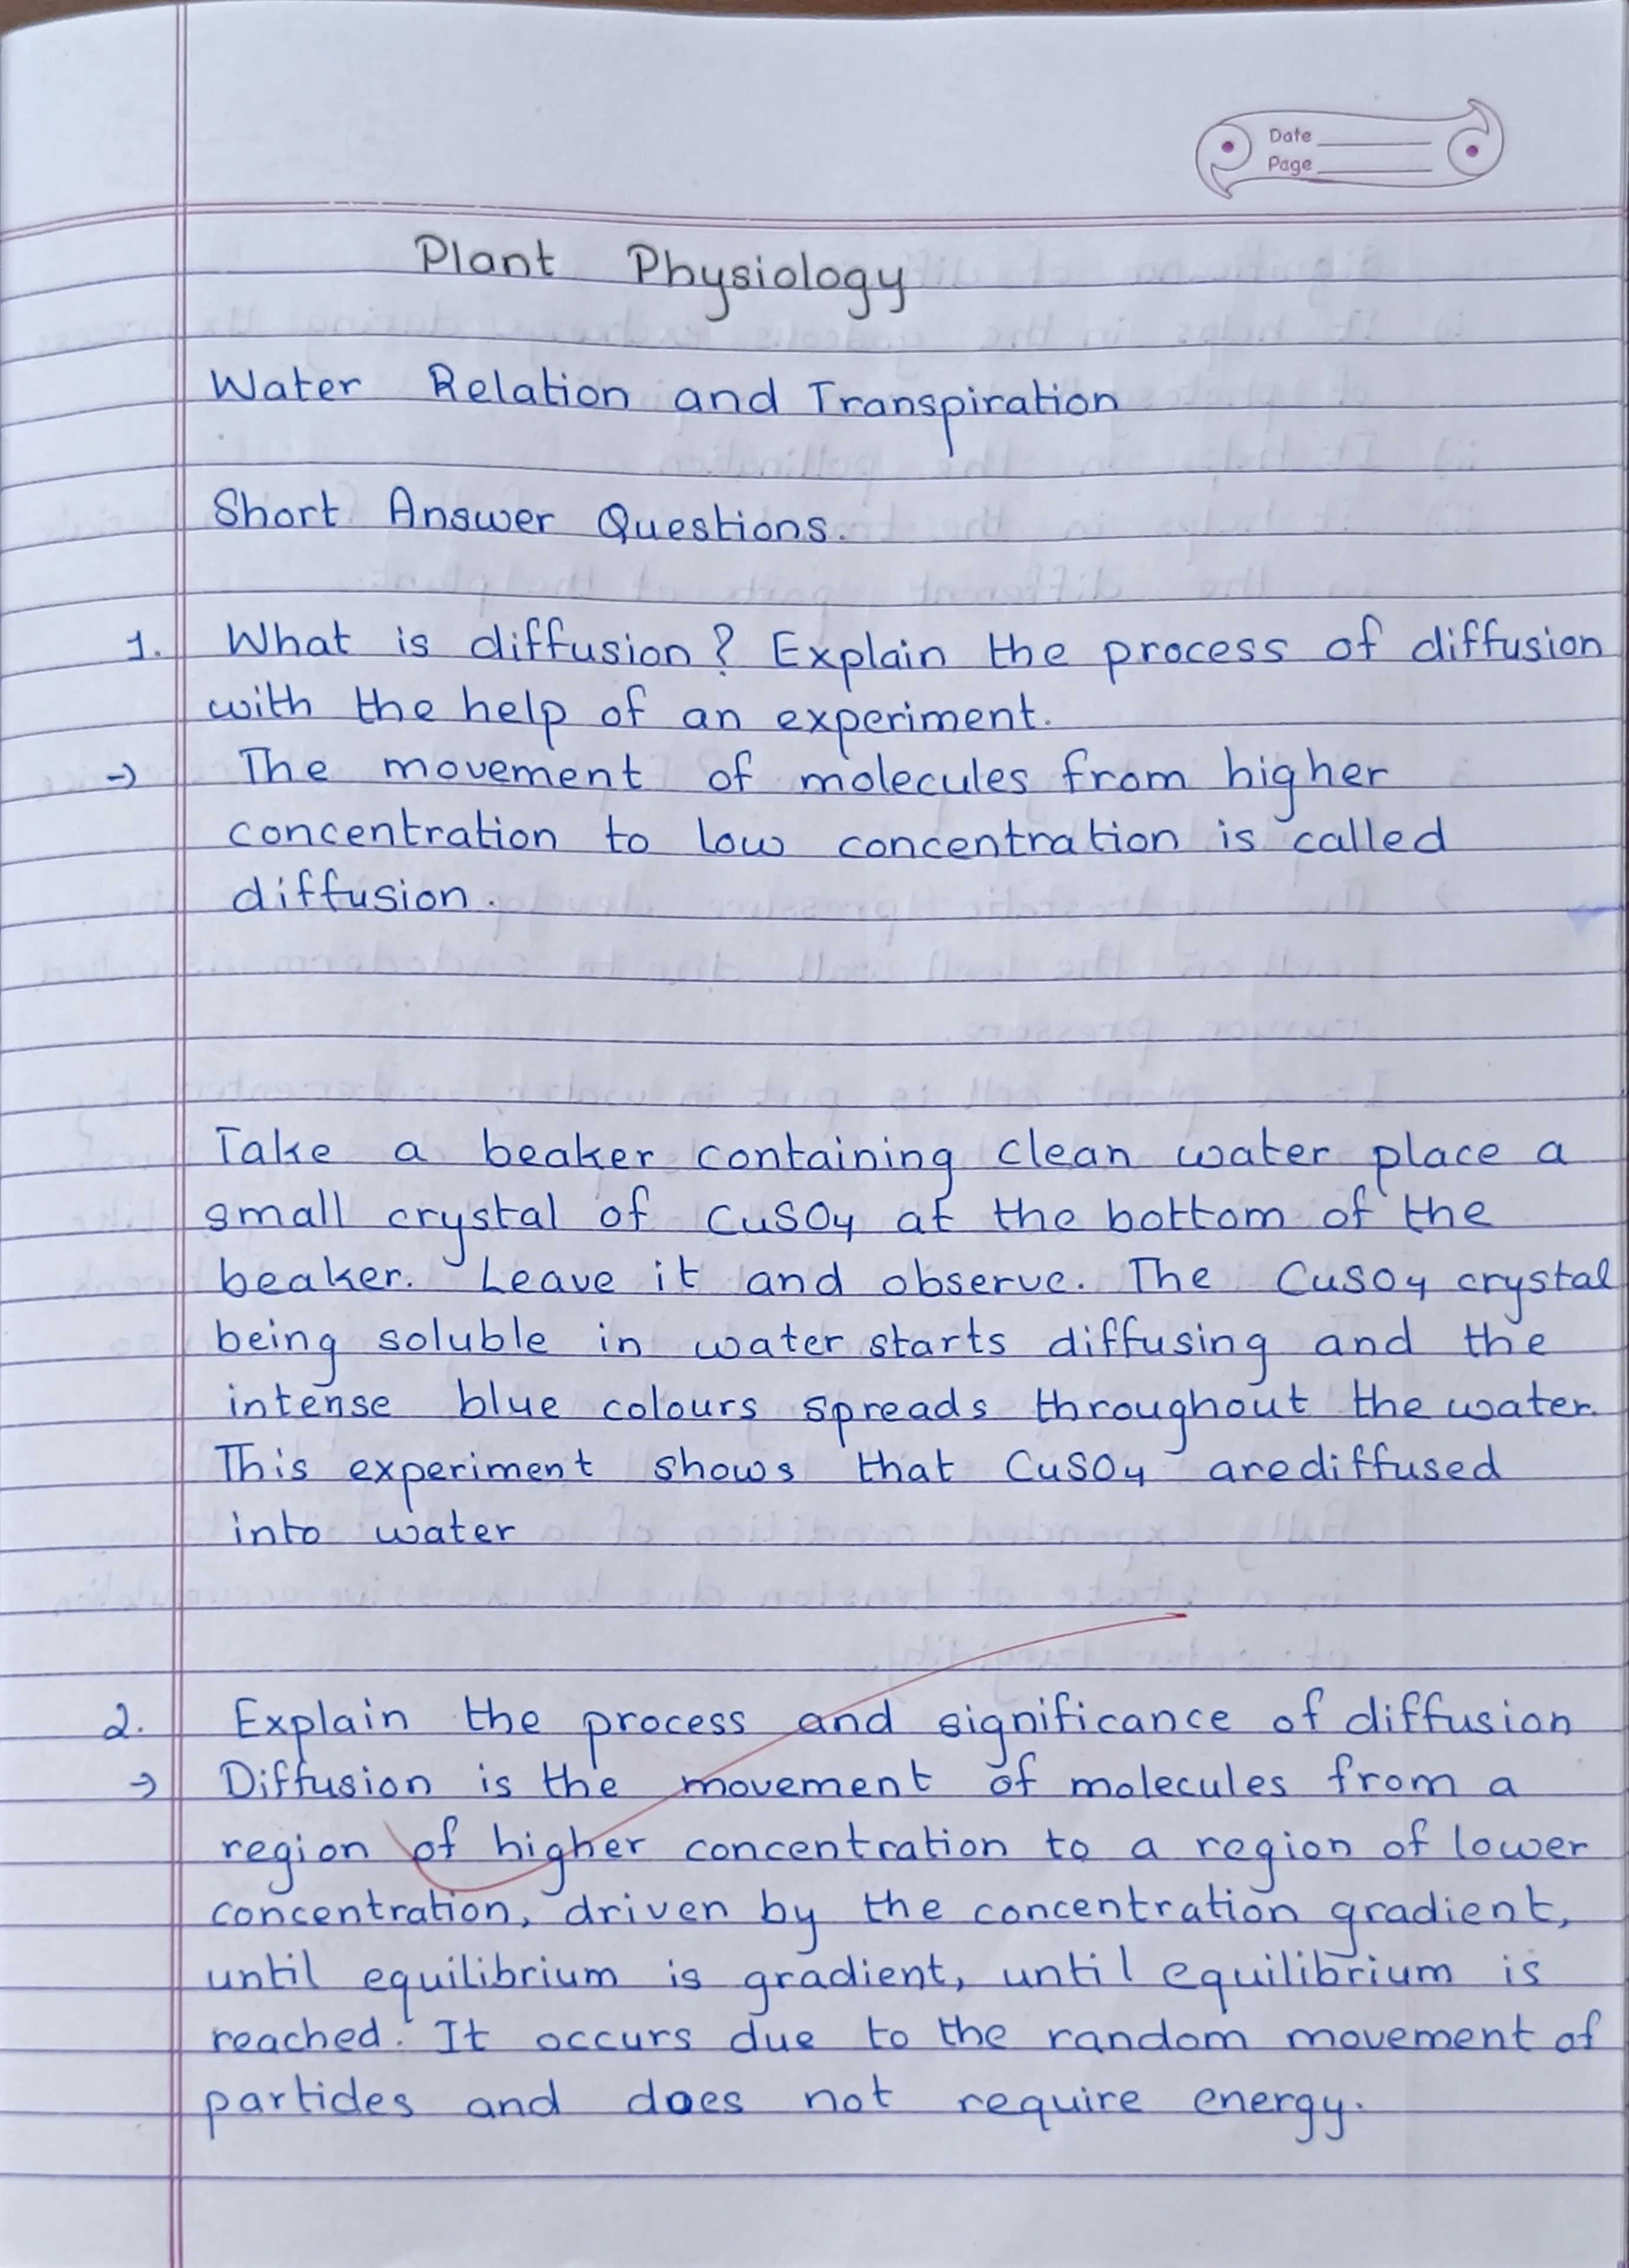 Date
Page
Plant Physiology
Water Relation and Transpiration
Short Answer Questions.
1. What is diffusion? Explain the process of diffusion
with the help of an experiment.
→ The movement of molecules from higher
concentration to low concentration is called
diffusion.
Take a beaker containing clean water place a
small crystal of CuSO4 at the bottom of the
beaker. Leave it and observe. The CuSO4 crystal
being soluble in water starts diffusing and the
intense blue colours spreads throughout the water.
This experiment shows that CuSO4 are diffused
into water
2. Explain the process and significance of diffusion
→ Diffusion is the movement of molecules from a
region of higher concentration to a region of lower
concentration, driven by the concentration gradient,
until equilibrium is gradient, until equilibrium is
reached. It occurs due to the random movement of
particles and does not require energy.